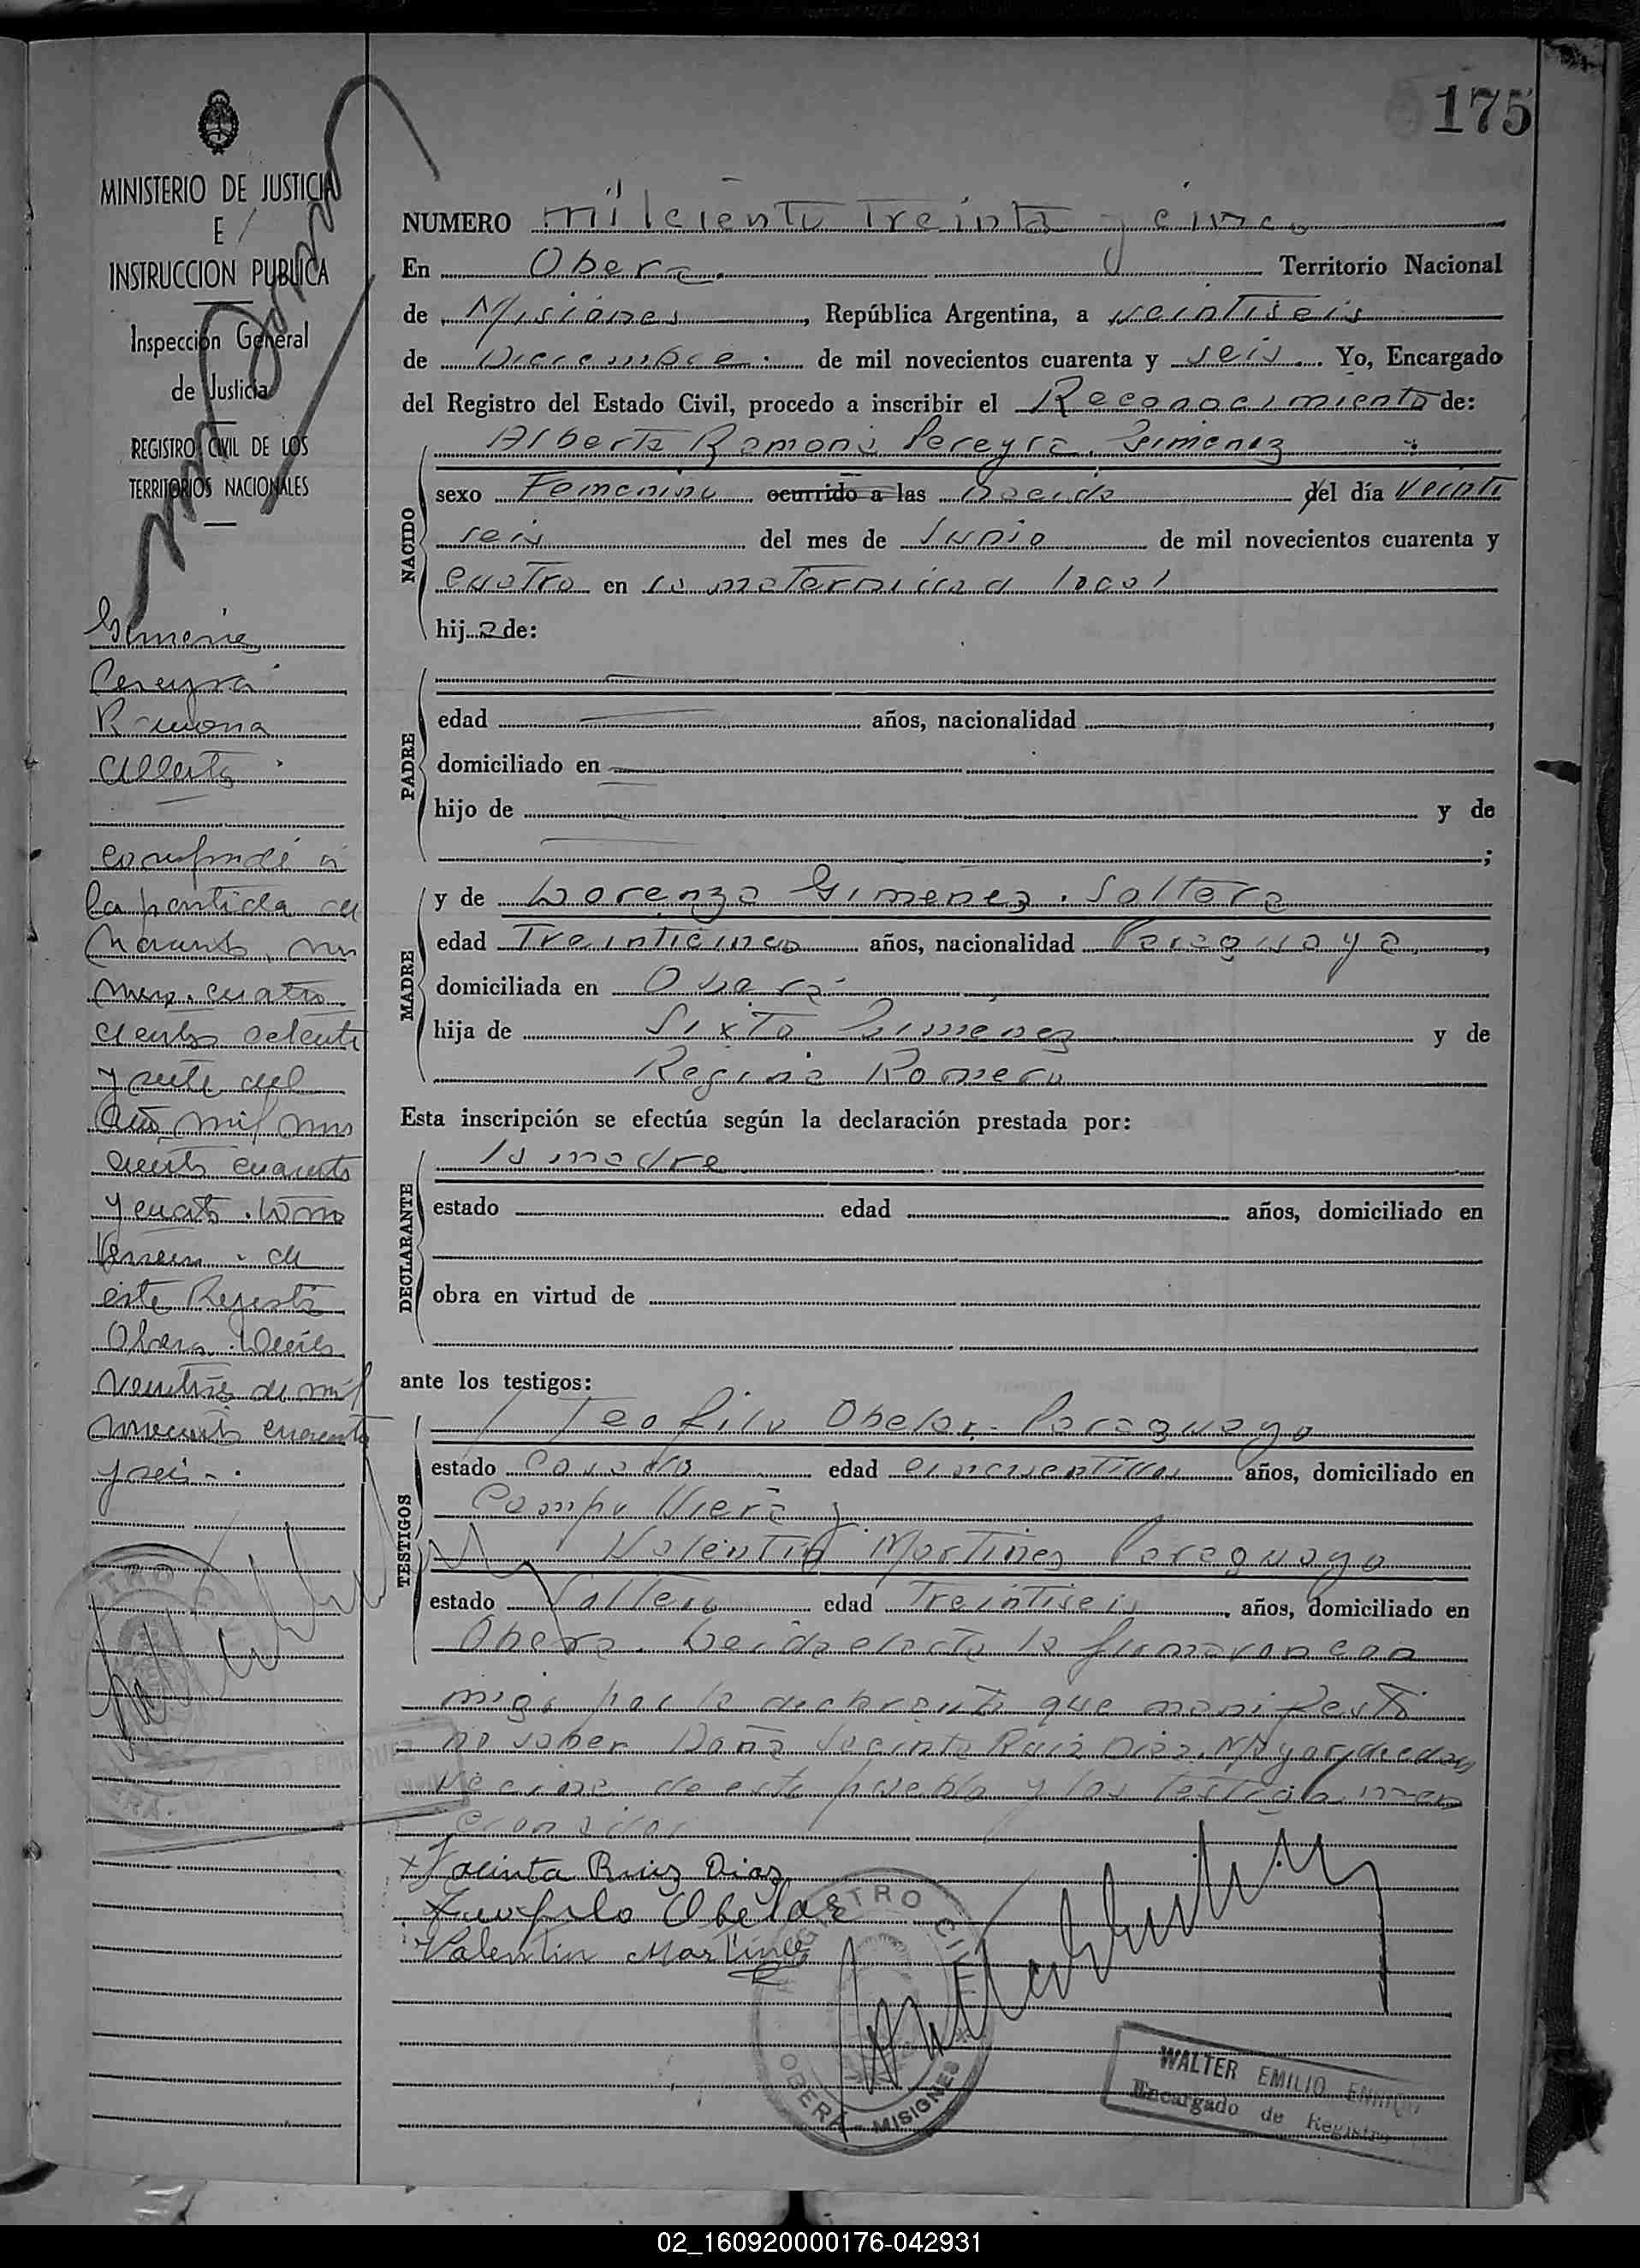 175
MINISTERIO DE JUSTICIA
E
INSTRUCCION PUBLICA
Inspección General
de Justicia
REGISTRO CIVIL DE LOS
TERRITORIOS NACIONALES
Pereyra
Ramona
Alberta
la partida de
mero cuatro
cientos
y siete del
año mil nove
cientos cuarenta
y cuatro. tomo
de
este Registro
Obera.
veintiseis de mil
novecientos cuarenta
y seis.
NUMERO mil ciento treinta y cinco
En Obera. Territorio Nacional
de Misiones, República Argentina, a veintiseis
de Diciembre. de mil novecientos cuarenta y seis. Yo, Encargado
del Registro del Estado Civil, procedo a inscribir el Reconocimiento de:
Alberta Ramona Pereyra. Gimenez
NACIDO
sexo Femenino ocurrido a las nacida del día veinti
seis del mes de Junio de mil novecientos cuarenta y
cuatro en la maternidad local
hija de:
PADRE
edad años, nacionalidad
domiciliado en
hijo de y de
;
MADRE
y de Lorenza Gimenez. Soltera
edad Treinticinco años, nacionalidad Paraguaya,
domiciliada en Oberá
hija de Sixto Gimenez y de
Regina Romero
Esta inscripción se efectúa según la declaración prestada por:
DECLARANTE
la madre
estado edad años, domiciliado en
obra en virtud de
ante los testigos:
TESTIGOS
Teofilo Obelar. Paraguayo
estado Casado edad cincuentidos años, domiciliado en
Campo Viera y
Valentin Martinez Paraguayo
estado Soltero edad Treintiseis, años, domiciliado en
Obera. Leida el acta la firmaron con
migo por la declarante que manifestó
no saber Doña Jacinta Ruiz Diaz. Mayor de edad
vecina de este pueblo y los testigos men
cionados
x Jacinta Ruiz Diaz
Teofilo Obelar
Valentin Martinez
REGISTRO CIVIL
OBERA - MISIONES
WALTER EMILIO
Encargado de Registro
02_160920000176-042931